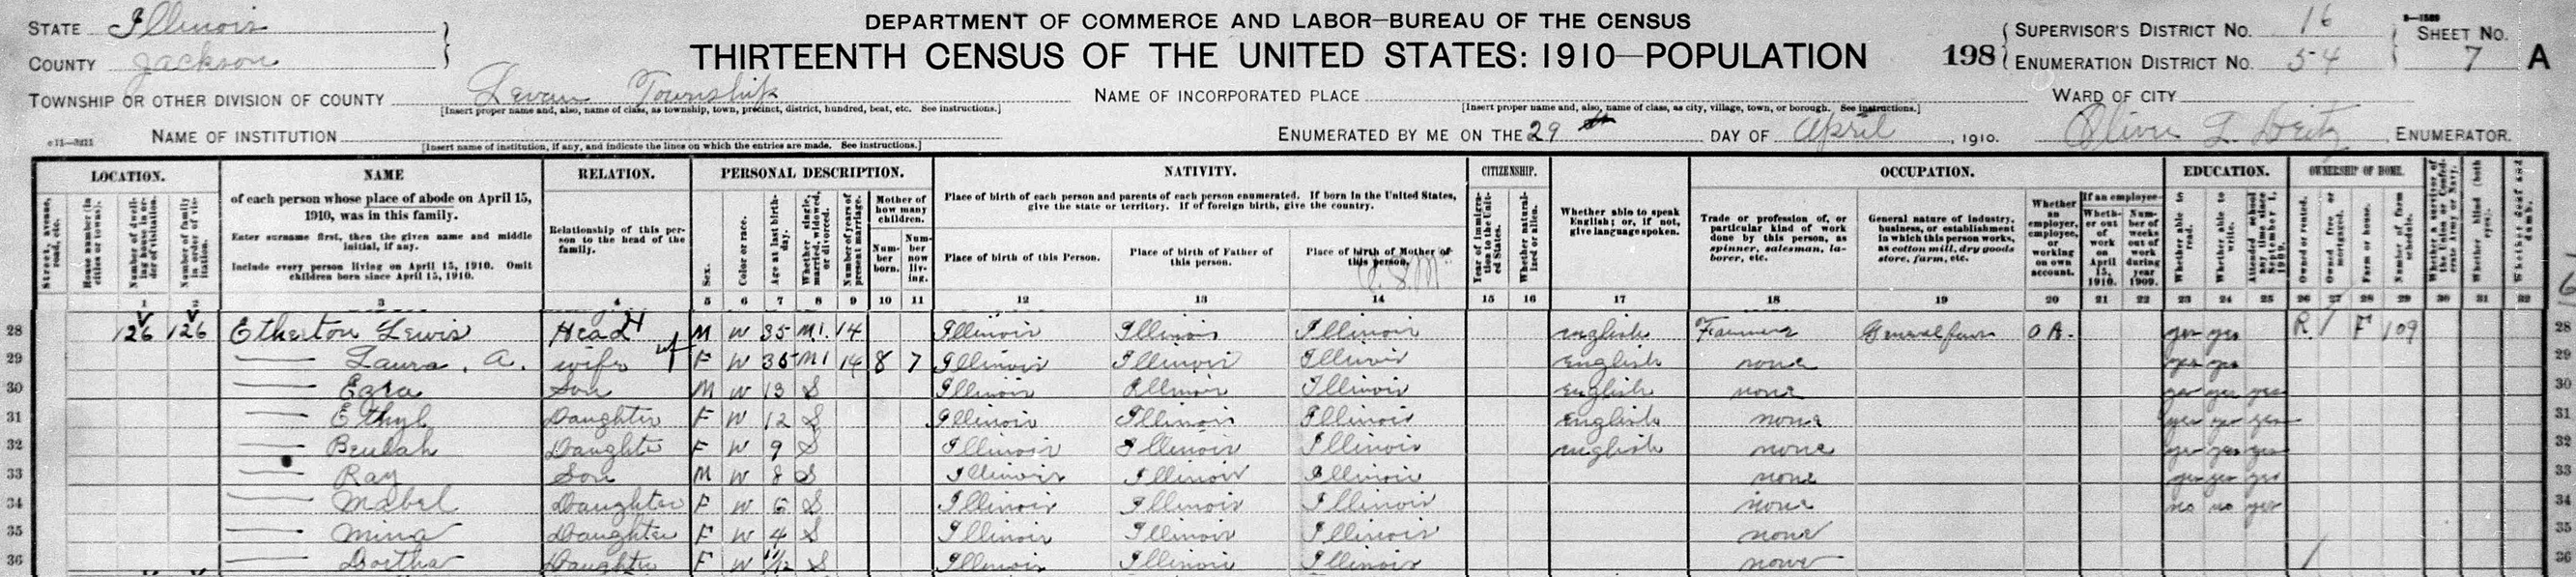 DEPARTMENT OF COMMERCE AND LABOR—BUREAU OF THE CENSUS
THIRTEENTH CENSUS OF THE UNITED STATES: 1910—POPULATION
STATE Illinois
COUNTY Jackson
TOWNSHIP OR OTHER DIVISION OF COUNTY Levan Township
[Insert proper name and, also, name of class, as township, town, precinct, district, hundred, beat, etc. See instructions.]
NAME OF INSTITUTION
[Insert name of institution, if any, and indicate the lines on which the entries are made. See instructions.]
NAME OF INCORPORATED PLACE
[Insert proper name and, also, name of class, as city, village, town, or borough. See instructions.]
ENUMERATED BY ME ON THE 29 DAY OF April, 1910.
198
SUPERVISOR'S DISTRICT NO. 16
ENUMERATION DISTRICT NO. 54
SHEET NO. 7 A
WARD OF CITY
Oliver L. Deitz, ENUMERATOR.
LOCATION.
Street, avenue, road, etc.
House number (in cities or towns).
Number of dwelling house in order of visitation.
Number of family in order of visitation.
NAME
of each person whose place of abode on April 15, 1910, was in this family.
Enter surname first, then the given name and middle initial, if any.
Include every person living on April 15, 1910. Omit children born since April 15, 1910.
RELATION.
Relationship of this person to the head of the family.
PERSONAL DESCRIPTION.
Sex.
Color or race.
Age at last birthday.
Whether single, married, widowed, or divorced.
Number of years of present marriage.
Mother of how many children.
Number born.
Number now living.
NATIVITY.
Place of birth of each person and parents of each person enumerated. If born in the United States, give the state or territory. If of foreign birth, give the country.
Place of birth of this Person.
Place of birth of Father of this person.
Place of birth of Mother of this person.
CITIZENSHIP.
Year of immigration to the United States.
Whether naturalized or alien.
Whether able to speak English; or, if not, give language spoken.
OCCUPATION.
Trade or profession of, or particular kind of work done by this person, as spinner, salesman, laborer, etc.
General nature of industry, business, or establishment in which this person works, as cotton mill, dry goods store, farm, etc.
Whether an employer, employee, or working on own account.
If an employee—
Whether out of work on April 15, 1910.
Number of weeks out of work during year 1909.
EDUCATION.
Whether able to read.
Whether able to write.
Attended school any time since September 1, 1909.
OWNERSHIP OF HOME.
Owned or rented.
Owned free or mortgaged.
Farm or house.
Number of farm schedule.
Whether a survivor of the Union or Confederate Army or Navy.
Whether blind (both eyes).
Whether deaf and dumb.
1 2 3 4 5 6 7 8 9 10 11 12 13 14 15 16 17 18 19 20 21 22 23 24 25 26 27 28 29 30 31 32
28 126 126 Etherton Lewis Head M W 35 M1 14 Illinois Illinois Illinois english Farmer General farm O A. yes yes R F 109 28
29 Laura, A. wife F W 35 M1 14 8 7 Illinois Illinois Illinois english none yes yes 29
30 Ezra Son M W 13 S Illinois Illinois Illinois english none yes yes yes 30
31 Ethyl Daughter F W 12 S Illinois Illinois Illinois english none yes yes yes 31
32 Beulah Daughter F W 9 S Illinois Illinois Illinois english none yes yes yes 32
33 Ray Son M W 8 S Illinois Illinois Illinois none yes yes yes 33
34 Mabel Daughter F W 6 S Illinois Illinois Illinois none no no yes 34
35 Mina Daughter F W 4 S Illinois Illinois Illinois none 35
36 Dortha Daughter F W S Illinois Illinois Illinois none 36